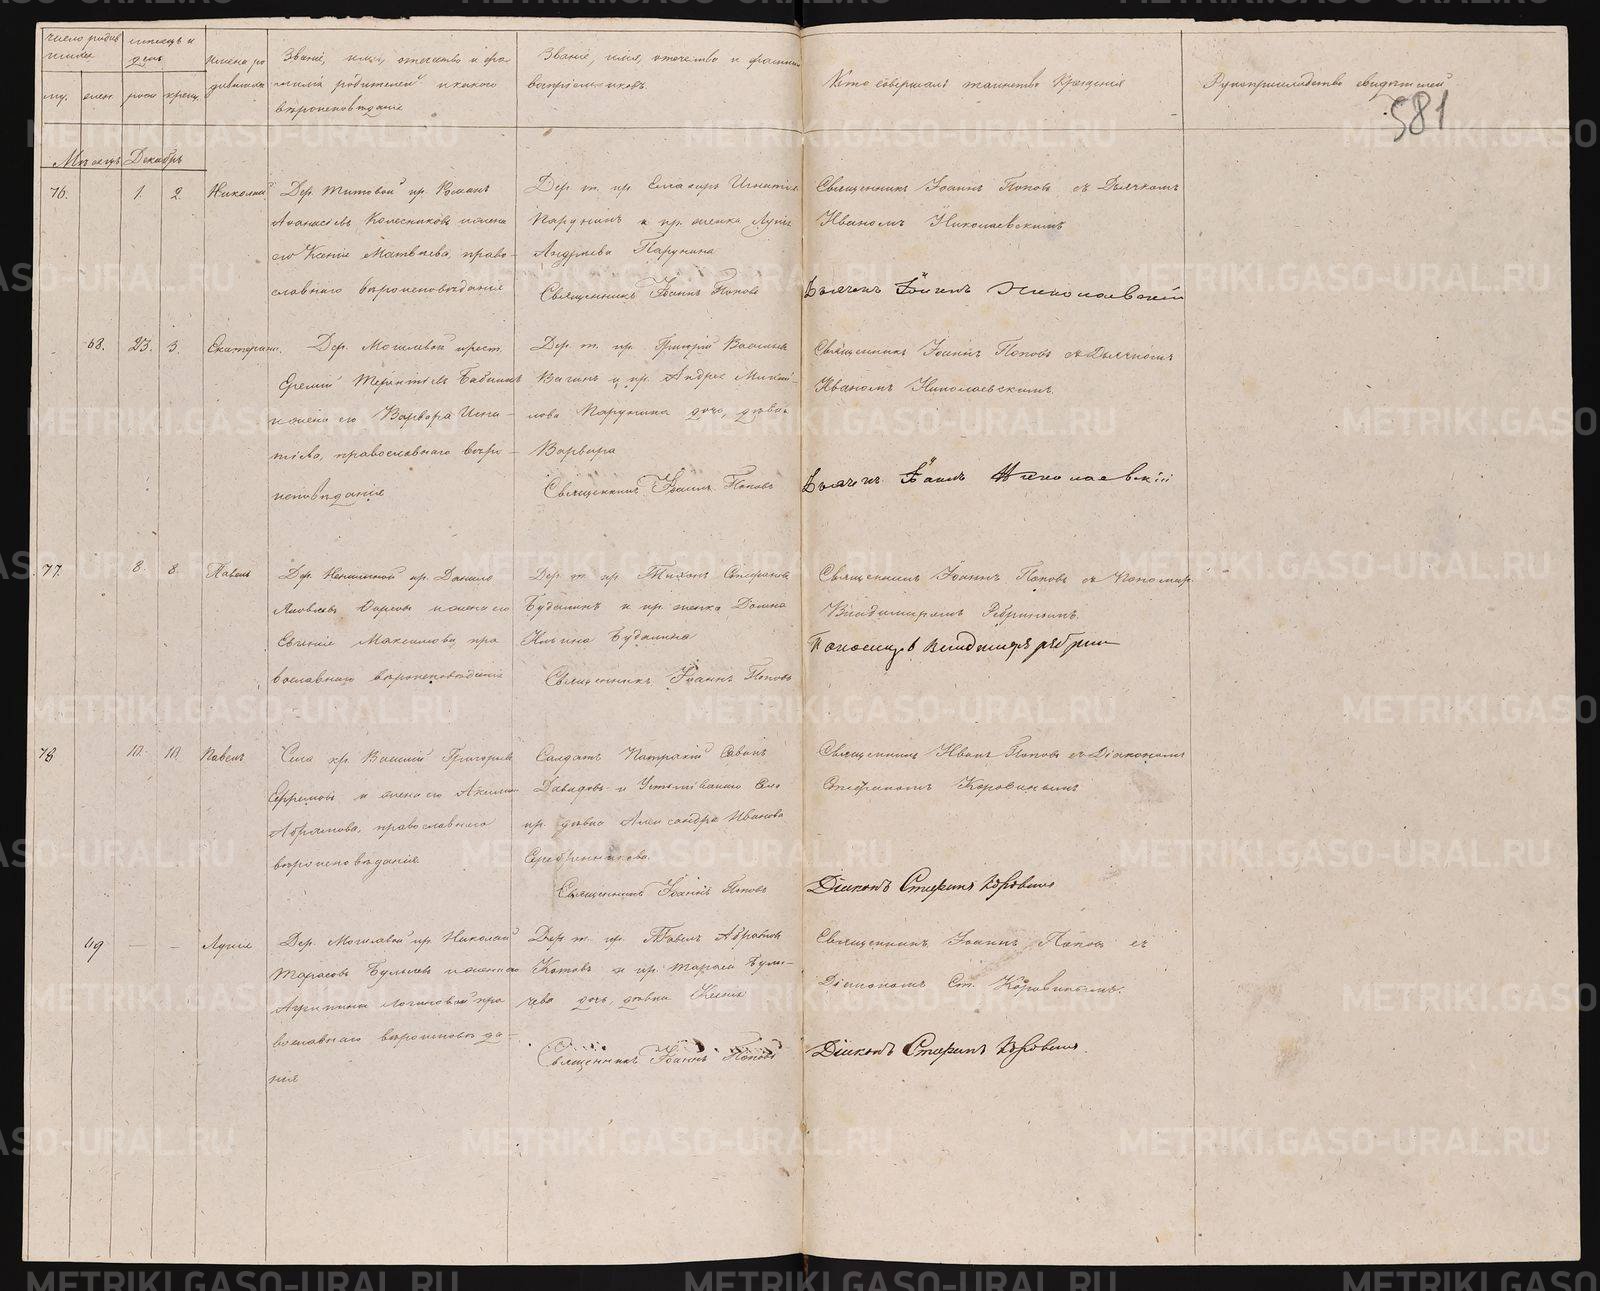 число родив
шихся
муж.
женс.
мѣсяцъ и
день
рожд
крещ.
имена ро
дившихся
Званіе, имя, отчество и фа-
милія родителей и какого
вѣроисповѣданія
Званіе, имя, отечество и фамилія
воспріемниковъ.
Кто совершалъ таинство крещенія
Рукоприкладство свидѣтелей
581
Мѣсяцъ Декабрь
76.
1.
2.
Николай
Дер. Титовой кр. Романъ
Аѳанасіевъ Колесниковъ и жена
его Ксенія Матвѣева, право-
славнаго вѣроисповѣданія
Дер. т. кр. Елеазаръ Игнатіевъ
Парунинъ и кр. женка
Андреева Парунина
Священникъ Іоаннъ Поповъ
Священникъ Іоаннъ Поповъ съ Дьячкомъ
Иваномъ Николаевскимъ
Дьячекъ Іоаннъ Николаевскій
68.
23.
3.
Екатерина.
Дер. Могилевой крест.
Еремій Терентіевъ Бабкинъ
и жена его Варвара Игна-
тіева, православнаго вѣро-
исповѣданія
Дер. т. кр. Григорій Васильевъ
Вагинъ и кр. Андрея Михай-
лова Парунина дочь, дѣвка
Варвара
Священникъ Іоаннъ Поповъ
Священникъ Іоаннъ Поповъ съ Дьячкомъ
Иваномъ Николаевскимъ.
Дьячекъ Іоаннъ Николаевскій
77.
8.
8.
Павелъ
Дер. кр. Данило
Яковлевъ и жена его
Евгенія Максимова, пра
вославнаго вѣроисповѣданія
Дер. т. кр. Тихонъ Стефановъ
Будилинъ и кр. женка Домна
Ильина Будилина
Священникъ Іоаннъ Поповъ
Священникъ Іоаннъ Поповъ съ Пономар.
Владимиромъ Ребринымъ.
Пономарь Владимиръ Ребринъ
78
10.
10.
Павелъ
Села кр. Василій Григорьевъ
Ефремовъ и жена его Акилина
Абрамова, православнаго
вѣроисповѣданія
Солдатъ Патракій Савинъ
Давыдовъ и Устьміасскаго Села
кр. дѣвка Александра Иванова
Серебренникова.
Священникъ Іоаннъ Поповъ
Священникъ Иванъ Поповъ съ Діакономъ
Стефаномъ Коровинымъ
Діаконъ Стефанъ Коровинъ
69
—
—
Лукія
Дер. Могилевой кр. Николай
Тарасовъ Булычевъ и жена его
Агрипина Логиновой пра
вославнаго вѣроисповѣда-
нія
Дер. т. кр. Павелъ Абрамовъ
Котовъ и кр. Тарасія Булы-
чева дочь, дѣвка Ксенія
Священникъ Іоаннъ Поповъ
Священникъ Іоаннъ Поповъ съ
Діакономъ Ст. Коровинымъ.
Діаконъ Стефанъ Коровинъ.